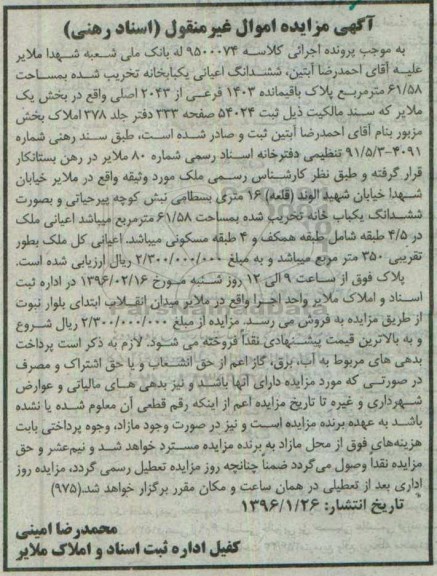 آگهی مزایده اموال غیرمنقول (اسناد رهنی)
به موجب پرونده اجرائی کلاسه ۹۵۰۰۰۷۴ له بانک ملی شعبه شهدا ملایر
علیه آقای احمدرضا آبتین، ششدانگ اعیانی یکبابخانه تخریب شده بمساحت
۶۱/۵۸ مترمربع پلاک باقیمانده ۱۴۰۳ فرعی از ۲۰۴۳ اصلی واقع در بخش یک
ملایر که سند مالکیت ذیل ثبت ۵۴۰۲۴ صفحه ۳۳۳ دفتر جلد ۲۷۸ املاک بخش
مزبور بنام آقای احمدرضا آبتین ثبت و صادر شده است، طبق سند رهنی شماره
۹۱/۵/۳-۴۰۹۱ تنظیمی دفترخانه اسناد رسمی شماره ۸۰ ملایر در رهن بستانکار
قرار گرفته و طبق نظر کارشناس رسمی ملک مورد وثیقه واقع در ملایر خیابان
شهدا خیابان شهید الوند (قلعه) ۱۶ متری بسطامی نبش کوچه پیرحیاتی و بصورت
ششدانگ یکباب خانه تخریب شده بمساحت ۶۱/۵۸ مترمربع میباشد اعیانی ملک
در ۴/۵ طبقه شامل طبقه همکف و ۴ طبقه مسکونی میباشد. اعیانی کل ملک بطور
تقریبی ۳۵۰ متر مربع میباشد و به مبلغ ۲/۳۰۰/۰۰۰/۰۰۰ ریال ارزیابی شده است.
پلاک فوق از ساعت ۹ الی ۱۲ روز شنبه مورخ ۱۳۹۶/۰۲/۱۶ در اداره ثبت
اسناد و املاک ملایر واحد اجرا واقع در ملایر میدان انقلاب ابتدای بلوار نبوت
از طریق مزایده به فروش می رسد. مزایده از مبلغ ۲/۳۰۰/۰۰۰/۰۰۰ ریال شروع
و به بالاترین قیمت پیشنهادی نقداً فروخته می شود. لازم به ذکر است پرداخت
بدهی های مربوط به آب، برق، گاز اعم از حق انشعاب و یا حق اشتراک و مصرف
در صورتی که مورد مزایده دارای آنها باشد و نیز بدهی های مالیاتی و عوارض
شهرداری و غیره تا تاریخ مزایده اعم از اینکه رقم قطعی آن معلوم شده یا نشده
باشد به عهده برنده مزایده است و نیز در صورت وجود مازاد، وجوه پرداختی بابت
هزینه‌های فوق از محل مازاد به برنده مزایده مسترد خواهد شد و نیم‌عشر و حق
مزایده نقدا وصول می‌گردد ضمنا چنانچه روز مزایده تعطیل رسمی گردد، مزایده روز
اداری بعد از تعطیلی در همان ساعت و مکان مقرر برگزار خواهد شد.(۹۷۵)
تاریخ انتشار: ۱۳۹۶/۱/۲۶
محمدرضا امینی
کفیل اداره ثبت اسناد و املاک ملایر